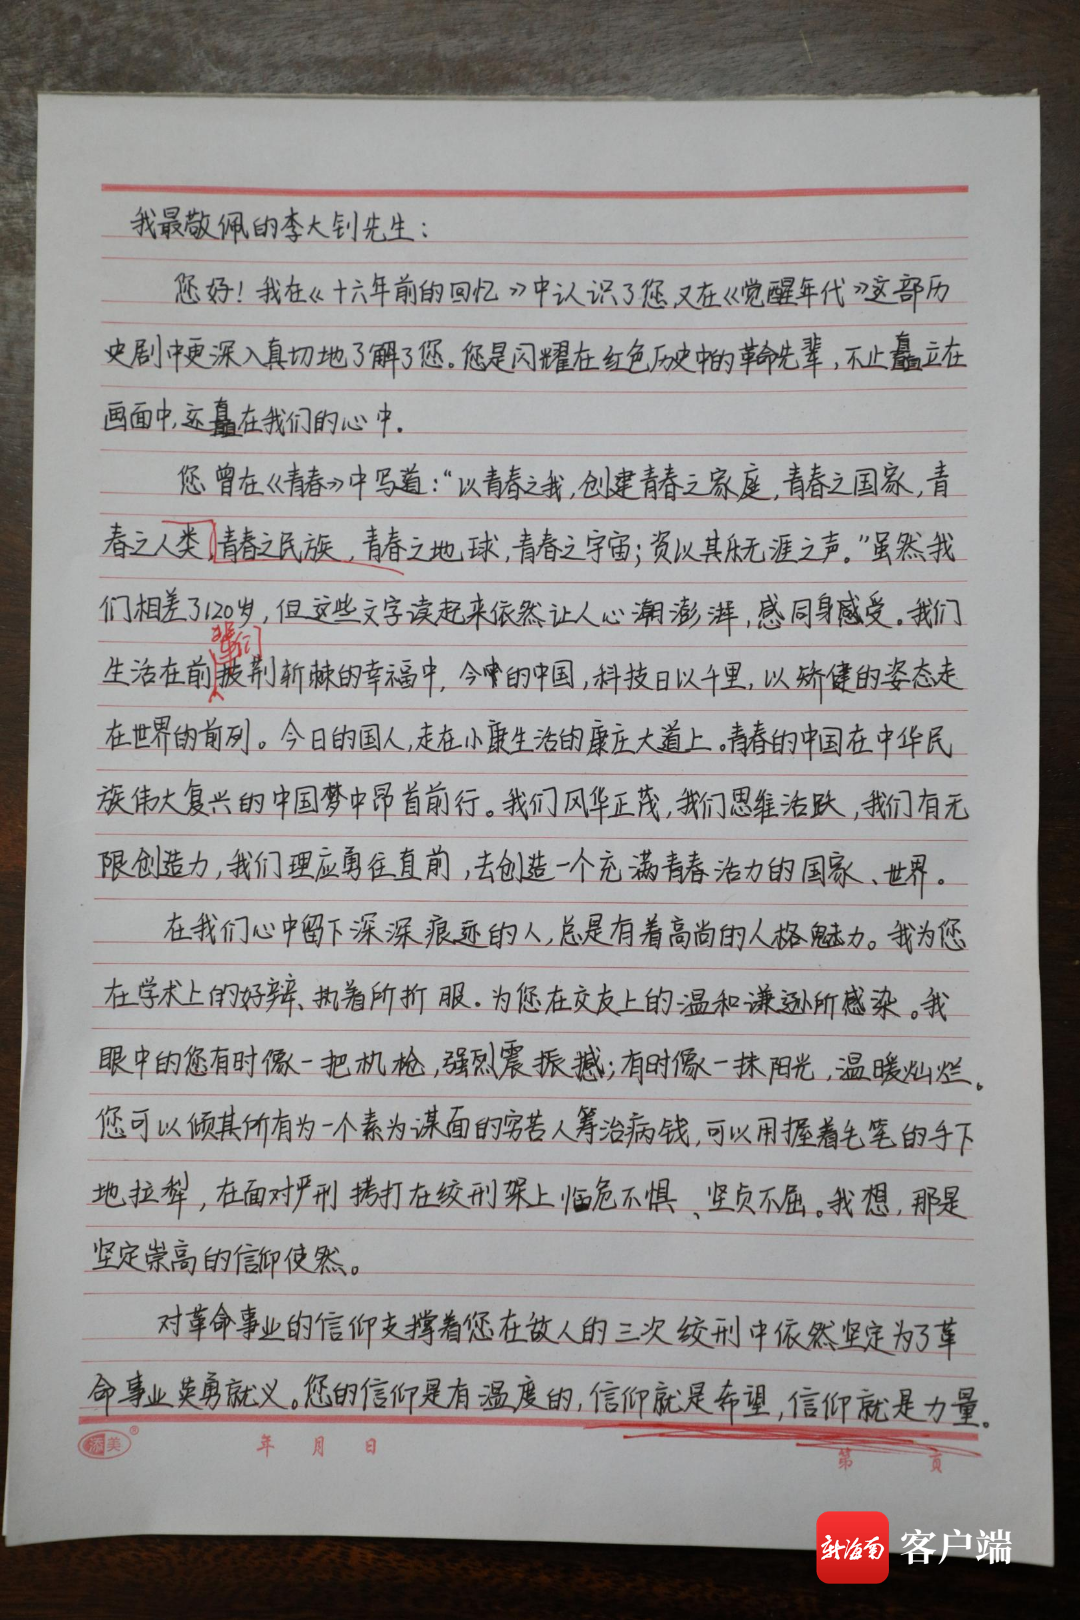 我最敬佩的李大钊先生：
您好！我在《十六年前的回忆》中认识了您，又在《觉醒年代》这部历
史剧中更深入真切地了解了您。您是闪耀在红色历史中的革命先辈，不止矗立在
画面中，亦矗在我们的心中。
您曾在《青春》中写道：“以青春之我，创建青春之家庭，青春之国家，青
春之人类，青春之民族，青春之地球，青春之宇宙；资以其乐无涯之声。”虽然我
们相差了120岁，但这些文字读起来依然让人心潮澎湃，感同身感受。我们
辈们
生活在前披荆斩棘的幸福中，今中的中国，科技日以千里，以矫健的姿态走
在世界的前列。今日的国人，走在小康生活的康庄大道上。青春的中国在中华民
族伟大复兴的中国梦中昂首前行。我们风华正茂，我们思维活跃，我们有无
限创造力，我们理应勇往直前，去创造一个充满青春活力的国家、世界。
在我们心中留下深深痕迹的人，总是有着高尚的人格魅力。我为您
在学术上的好辩、执着所折服。为您在交友上的温和谦逊所感染。我
眼中的您有时像一把机枪，强烈震振撼；有时像一抹阳光，温暖灿烂。
您可以倾其所有为一个素为谋面的穷苦人筹治病钱，可以用握着毛笔的手下
地拉犁，在面对严刑拷打在绞刑架上临危不惧、坚贞不屈。我想，那是
坚定崇高的信仰使然。
对革命事业的信仰支撑着您在敌人的三次绞刑中依然坚定为了革
命事业英勇就义。您的信仰是有温度的，信仰就是希望，信仰就是力量。
添美®
年 月 日
第 页
新海南 客户端